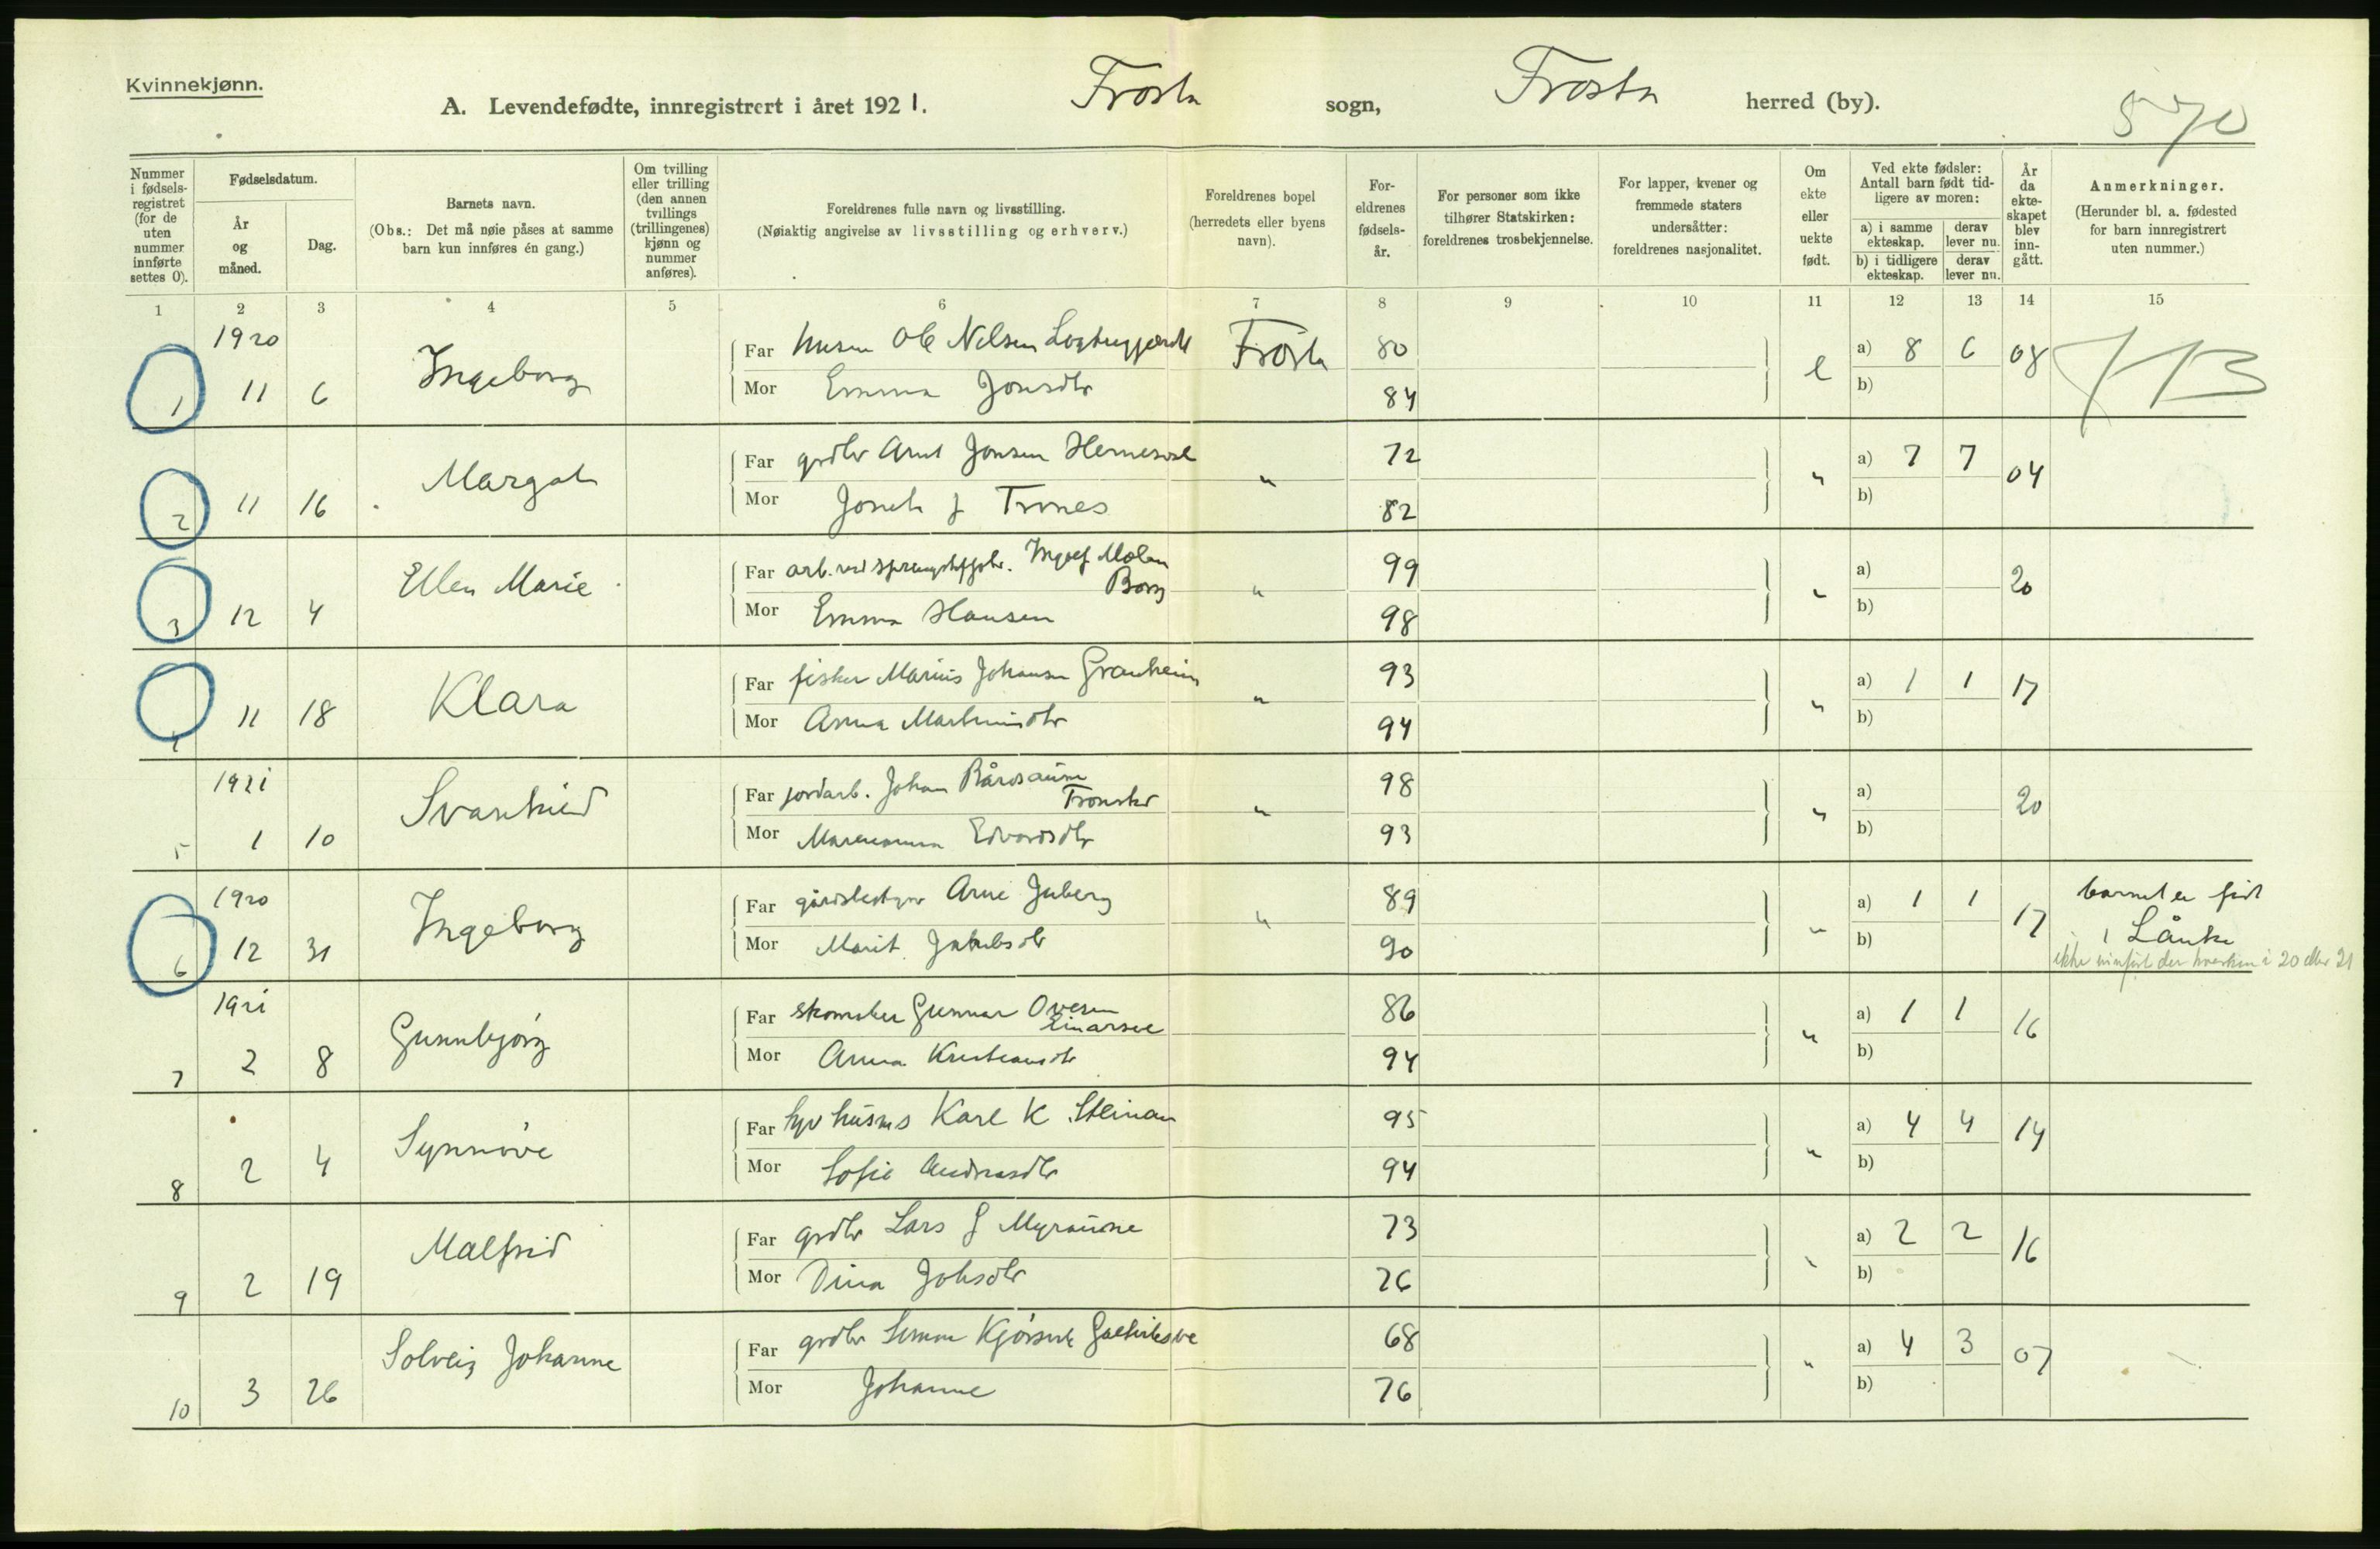 Kvinnekjønn.
A. Levendefødte, innregistrert i året 1921. Frosta sogn, Frosta herred (by).
570
Nummer i fødsels-registret (for de uten nummer innførte settes 0).
Fødselsdatum.
År og måned.
Dag.
Barnets navn.
(Obs.: Det må nøie påses at samme barn kun innføres én gang.)
Om tvilling eller trilling (den annen tvillings (trillingenes) kjønn og nummer anføres).
Foreldrenes fulle navn og livsstilling.
(Nøiaktig angivelse av livsstilling og erhverv.)
Foreldrenes bopel
(herredets eller byens navn).
For-eldrenes fødsels-år.
For personer som ikke tilhører Statskirken: foreldrenes trosbekjennelse.
For lapper, kvener og fremmede staters undersåtter: foreldrenes nasjonalitet.
Om ekte eller uekte født.
Ved ekte fødsler: Antall barn født tid-ligere av moren:
a) i samme ekteskap.
derav lever nu.
b) i tidligere ekteskap.
derav lever nu.
År da ekte-skapet blev inn-gått.
Anmerkninger.
(Herunder bl. a. fødested for barn innregistrert uten nummer.)
1 2 3 4 5 6 7 8 9 10 11 12 13 14 15
1920
1 11 6 Ingeborg Far Ole Nelsen Frosta 80 e a) 8 6 08
Mor Emma Jonsdtr 84 b)
2 11 16 Margot Far grdbr Arnt Jonsen 72 " a) 7 7 04
Mor J Trones 82 b)
3 12 4 Ellen Marie Far arb. ved 99 " a) 20
Borg
Mor Emma Hansen 98 b)
4 11 18 Klara Far fisker Marius Johansen Granheim " 93 " a) 1 1 17
Mor Anna 94 b)
1921
5 1 10 Svanhild Far jordarb. Johan " 98 " a) 20
Mor Edvardsdtr 93 b)
1920
6 12 31 Ingeborg Far gårdsbestyrer Arne Juberg " 89 " a) 1 1 17 barnet er født
Mor Marit Jakobsdtr 90 b) i Lånke
ikke innført der hverken i 20 eller 21
1921
7 2 8 Gunnbjørg Far skomaker Gunnar Ovesen 86 " a) 1 1 16
Mor Anna Kristiansdtr 94 b)
8 2 4 Synnøve Far Karl K. 95 " a) 4 4 14
Mor Sofie Andreasdtr 94 b)
9 2 19 Malfrid Far grdbr Lars J Myraune 73 " a) 2 2 16
Mor Dina 76 b)
10 3 26 Solveig Johanne Far grdbr 68 " a) 4 3 07
Mor Johanne 76 b)